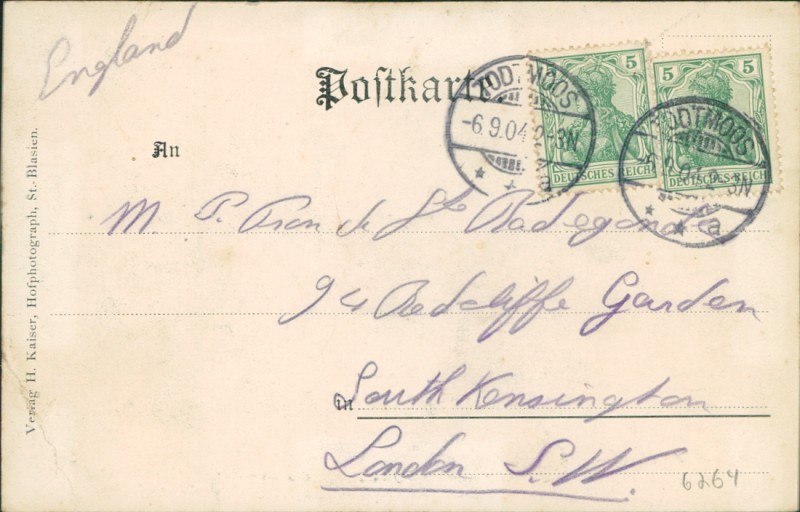 England
Postkarte.
TODTMOOS
-6.9.04.2-3N
5
DEUTSCHES REICH
5
DEUTSCHES REICH
TODTMOOS
3N
a
An
M. P. de Ste Radegonde
94 Redcliffe Garden
in South Kensington
London S.W.
6264
Verlag H. Kaiser, Hofphotograph, St. Blasien.